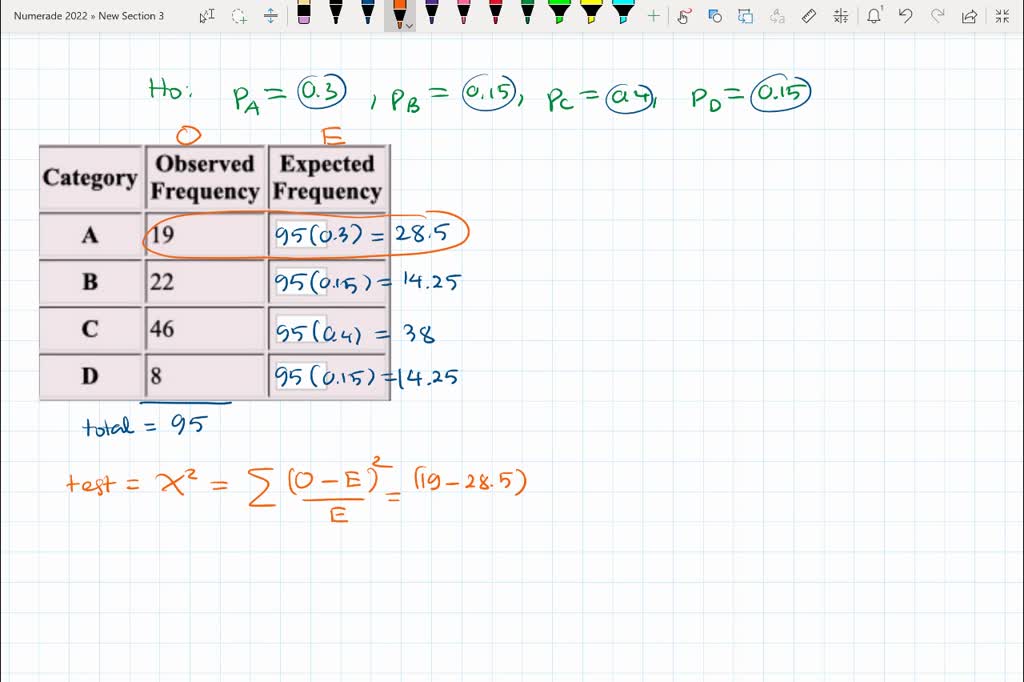 Numerade 2022 » New Section 3
Ho: PA = 0.3 , PB = 0.15, PC = 0.4, PD = 0.15
O E
Category Observed Frequency Expected Frequency
A 19 95(0.3) = 28.5
B 22 95(0.15) = 14.25
C 46 95(0.4) = 38
D 8 95(0.15) = 14.25
total = 95
test = χ² = ∑ (O - E)² / E = (19 - 28.5)